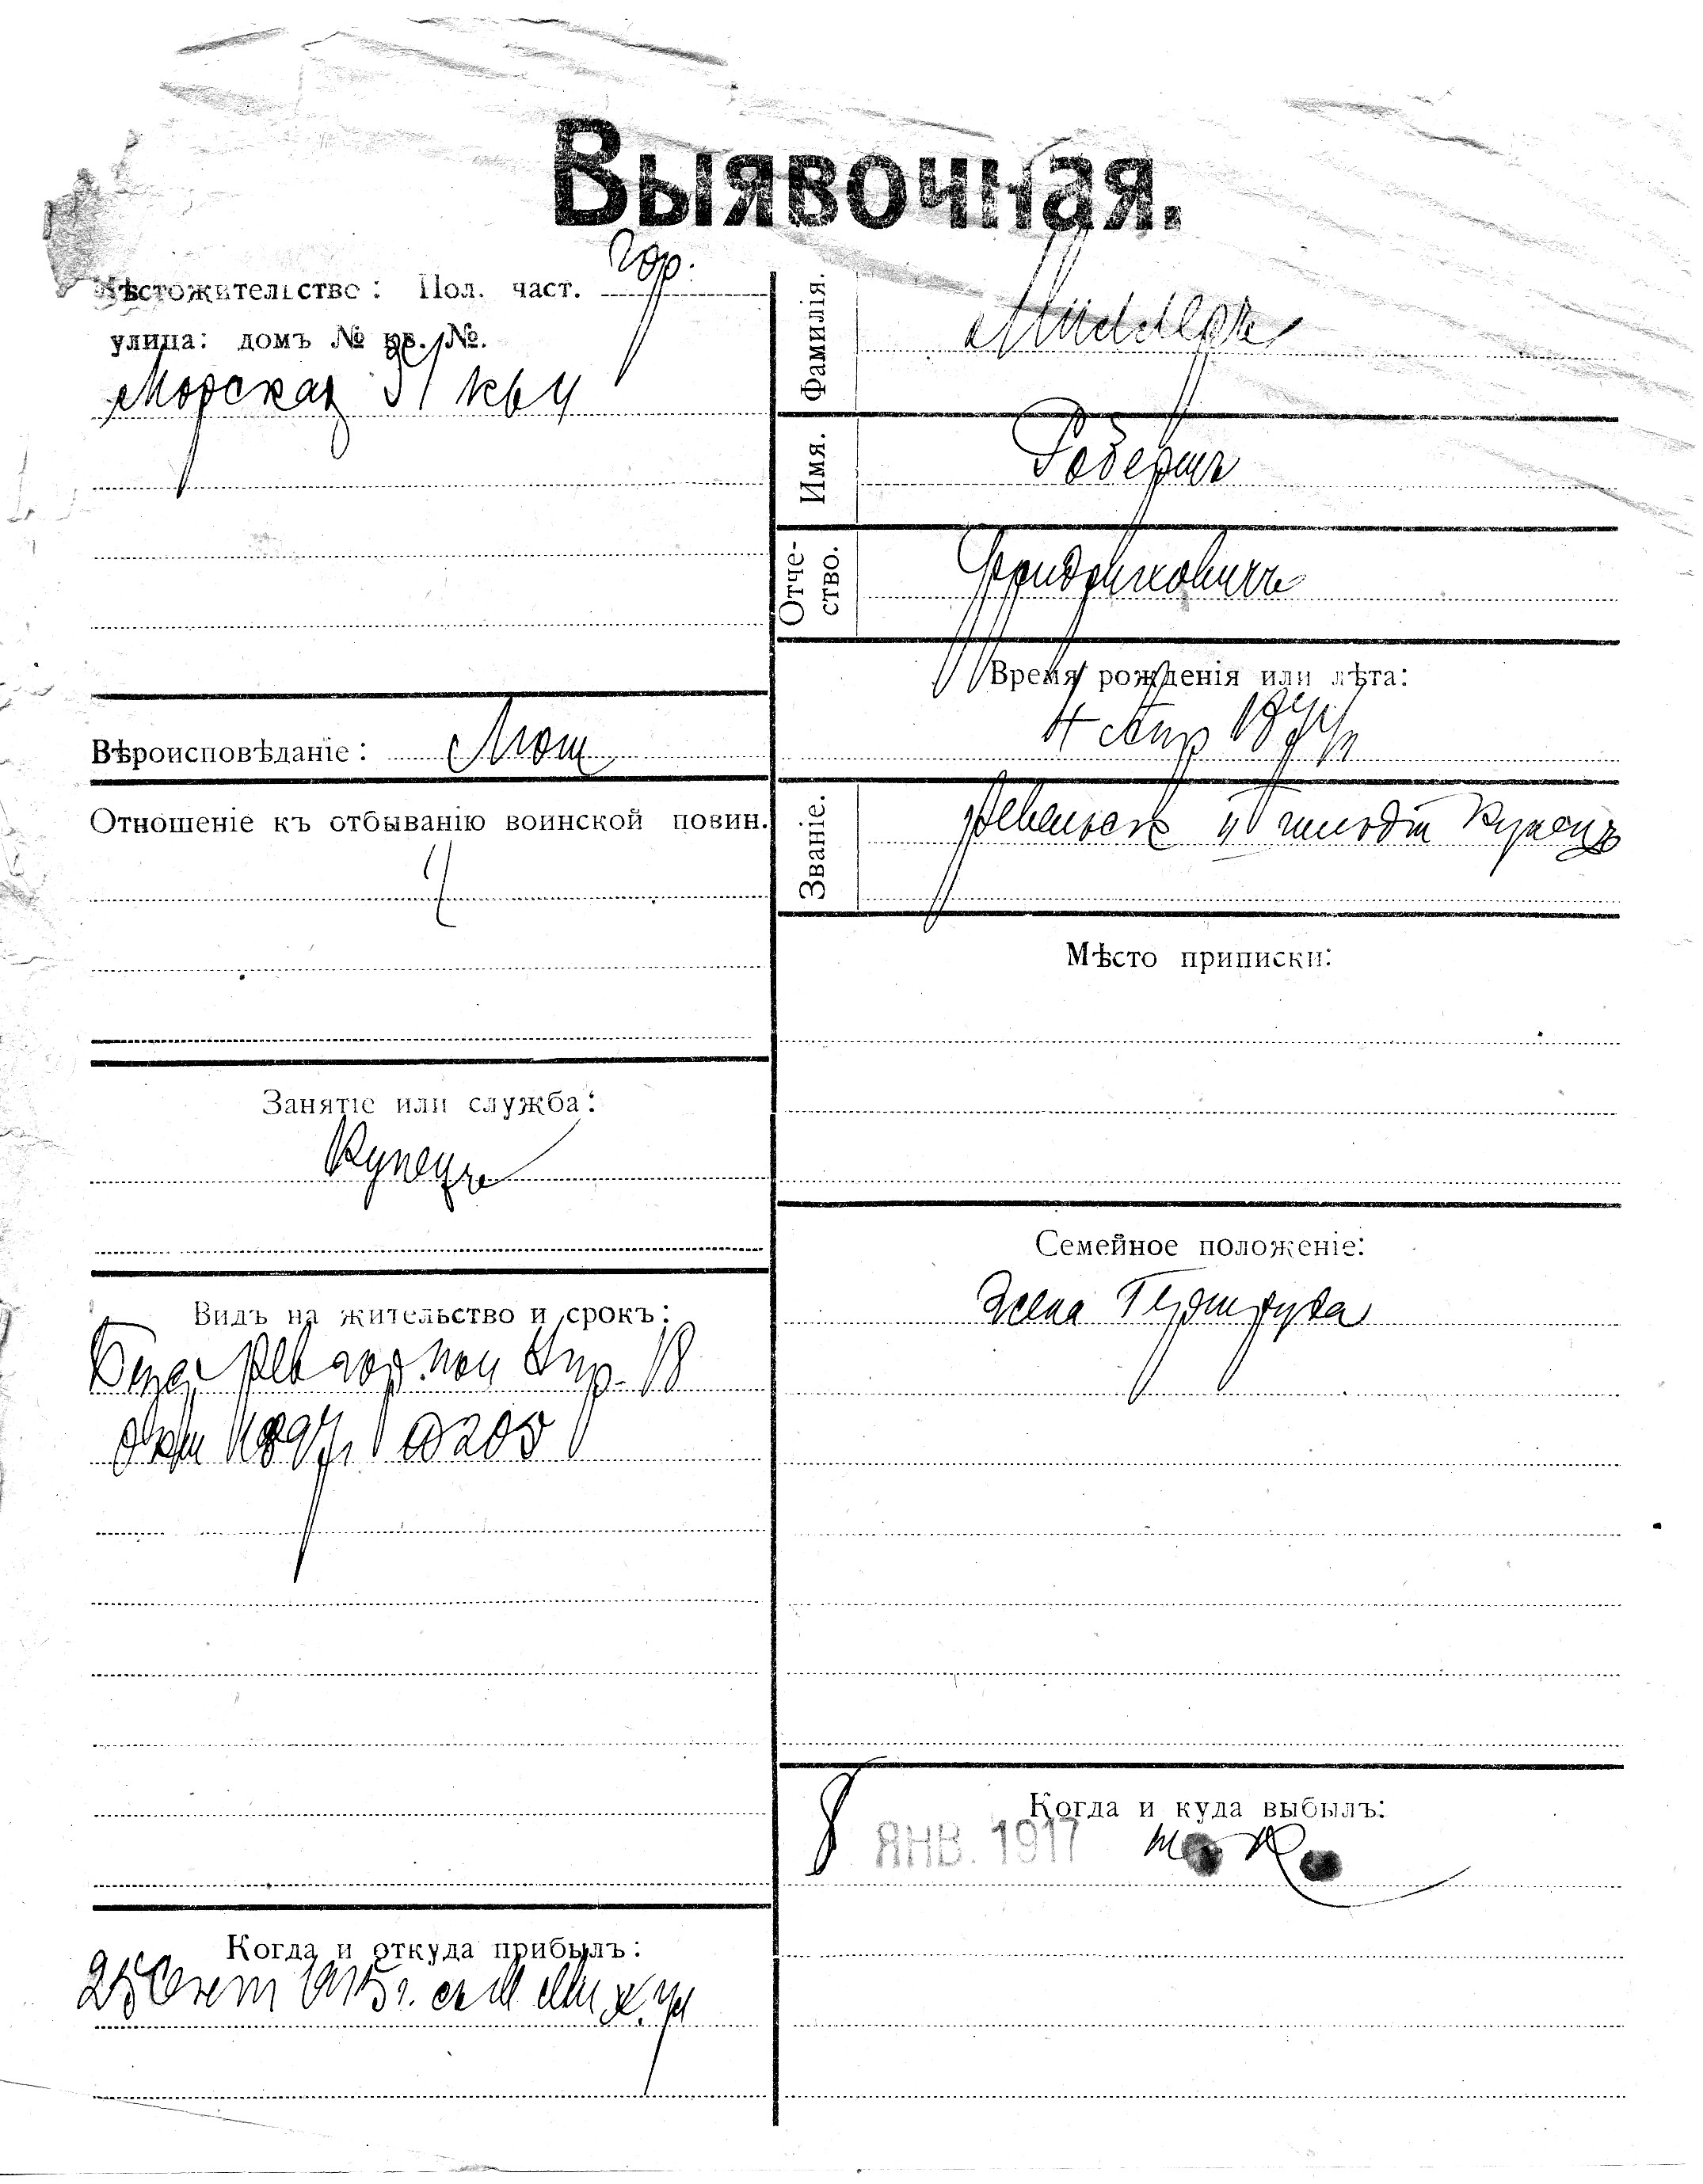 Выявочная.
Мѣстожительство: Пол. част. гор.
улица: домъ № кв. №.
Морская 31 кв 4
Вѣроисповѣданіе: Лют
Отношеніе къ отбыванію воинской повин.
Занятіе или служба:
Купецъ
Видъ на жительство и срокъ:
Рев гор. пол Упр. 18
окт 1897 г 0205
Когда и откуда прибылъ:
25 Сент 1915 г. съ М
Фамилія. Миллеръ
Имя. Робертъ
Отче-
ство. Фридриховичъ
Время рожденія или лѣта:
4 Апр
Званіе. Ревельск II гильдіи Купецъ
Мѣсто приписки:
Семейное положеніе:
Жена Гертруда
Когда и куда выбылъ:
8 ЯНВ. 1917